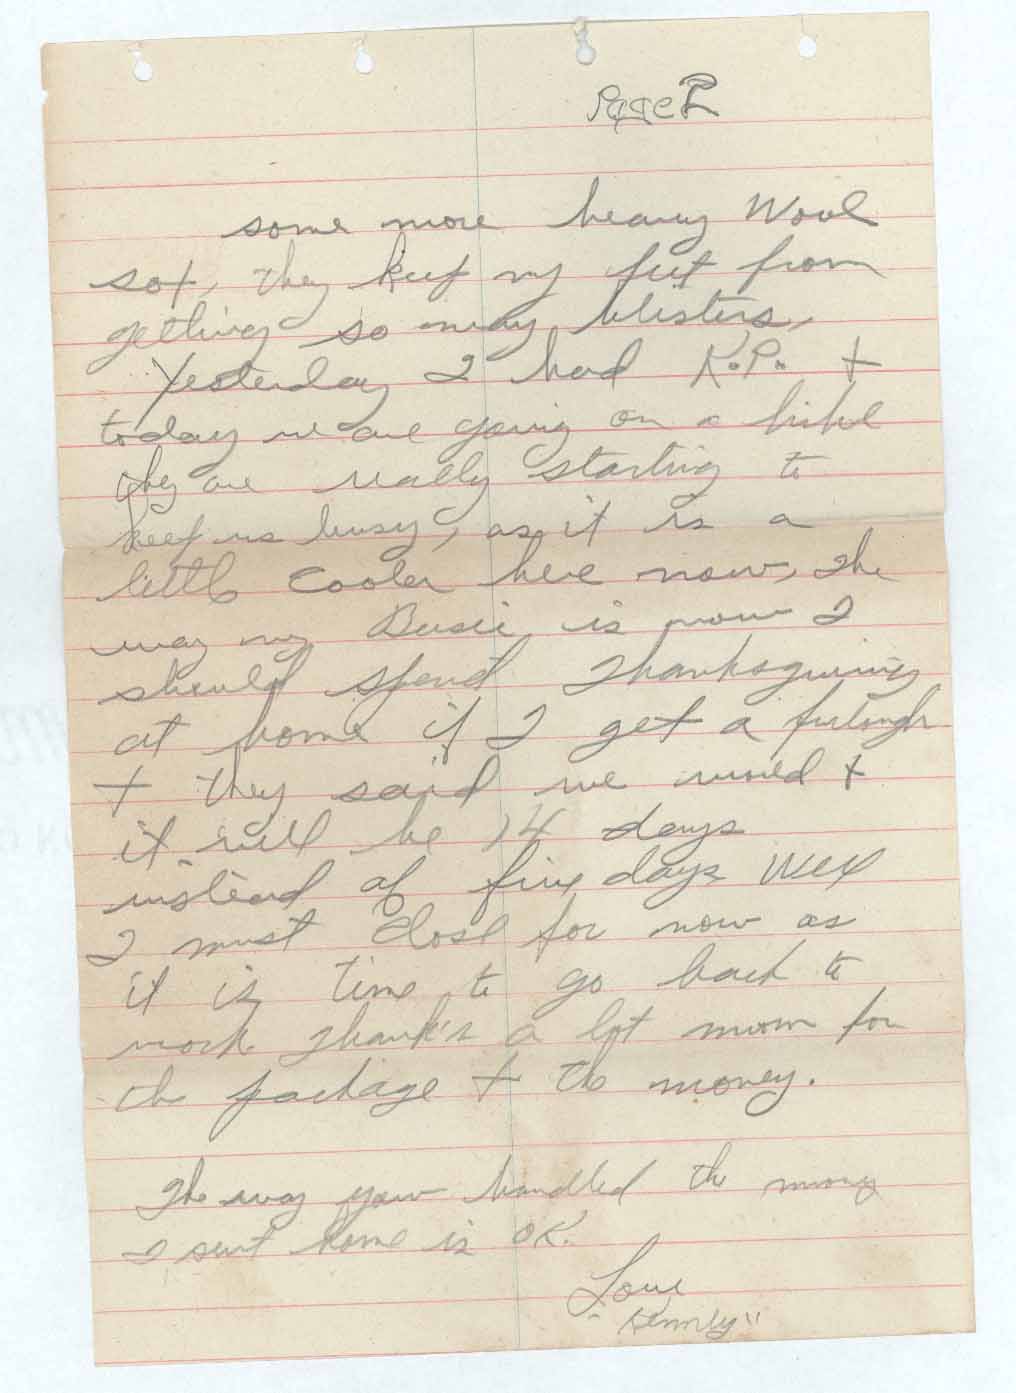 Page 2
some more heavy Wool
sox, they keep my feet from
getting so many blisters,
Yesterday I had K.P. +
today we are going on a hike
they are really starting to
keep us busy, as it is a
little cooler here now, the
way my Basic is now I
should spend Thanksgiving
at home if I get a furlough
+ they said we would +
it will be 14 days
instead of five days Well
I must close for now as
it is time to go back to
work Thank's a lot mom for
the package + the money.
The way you handled the money
I sent home is OK.
Love